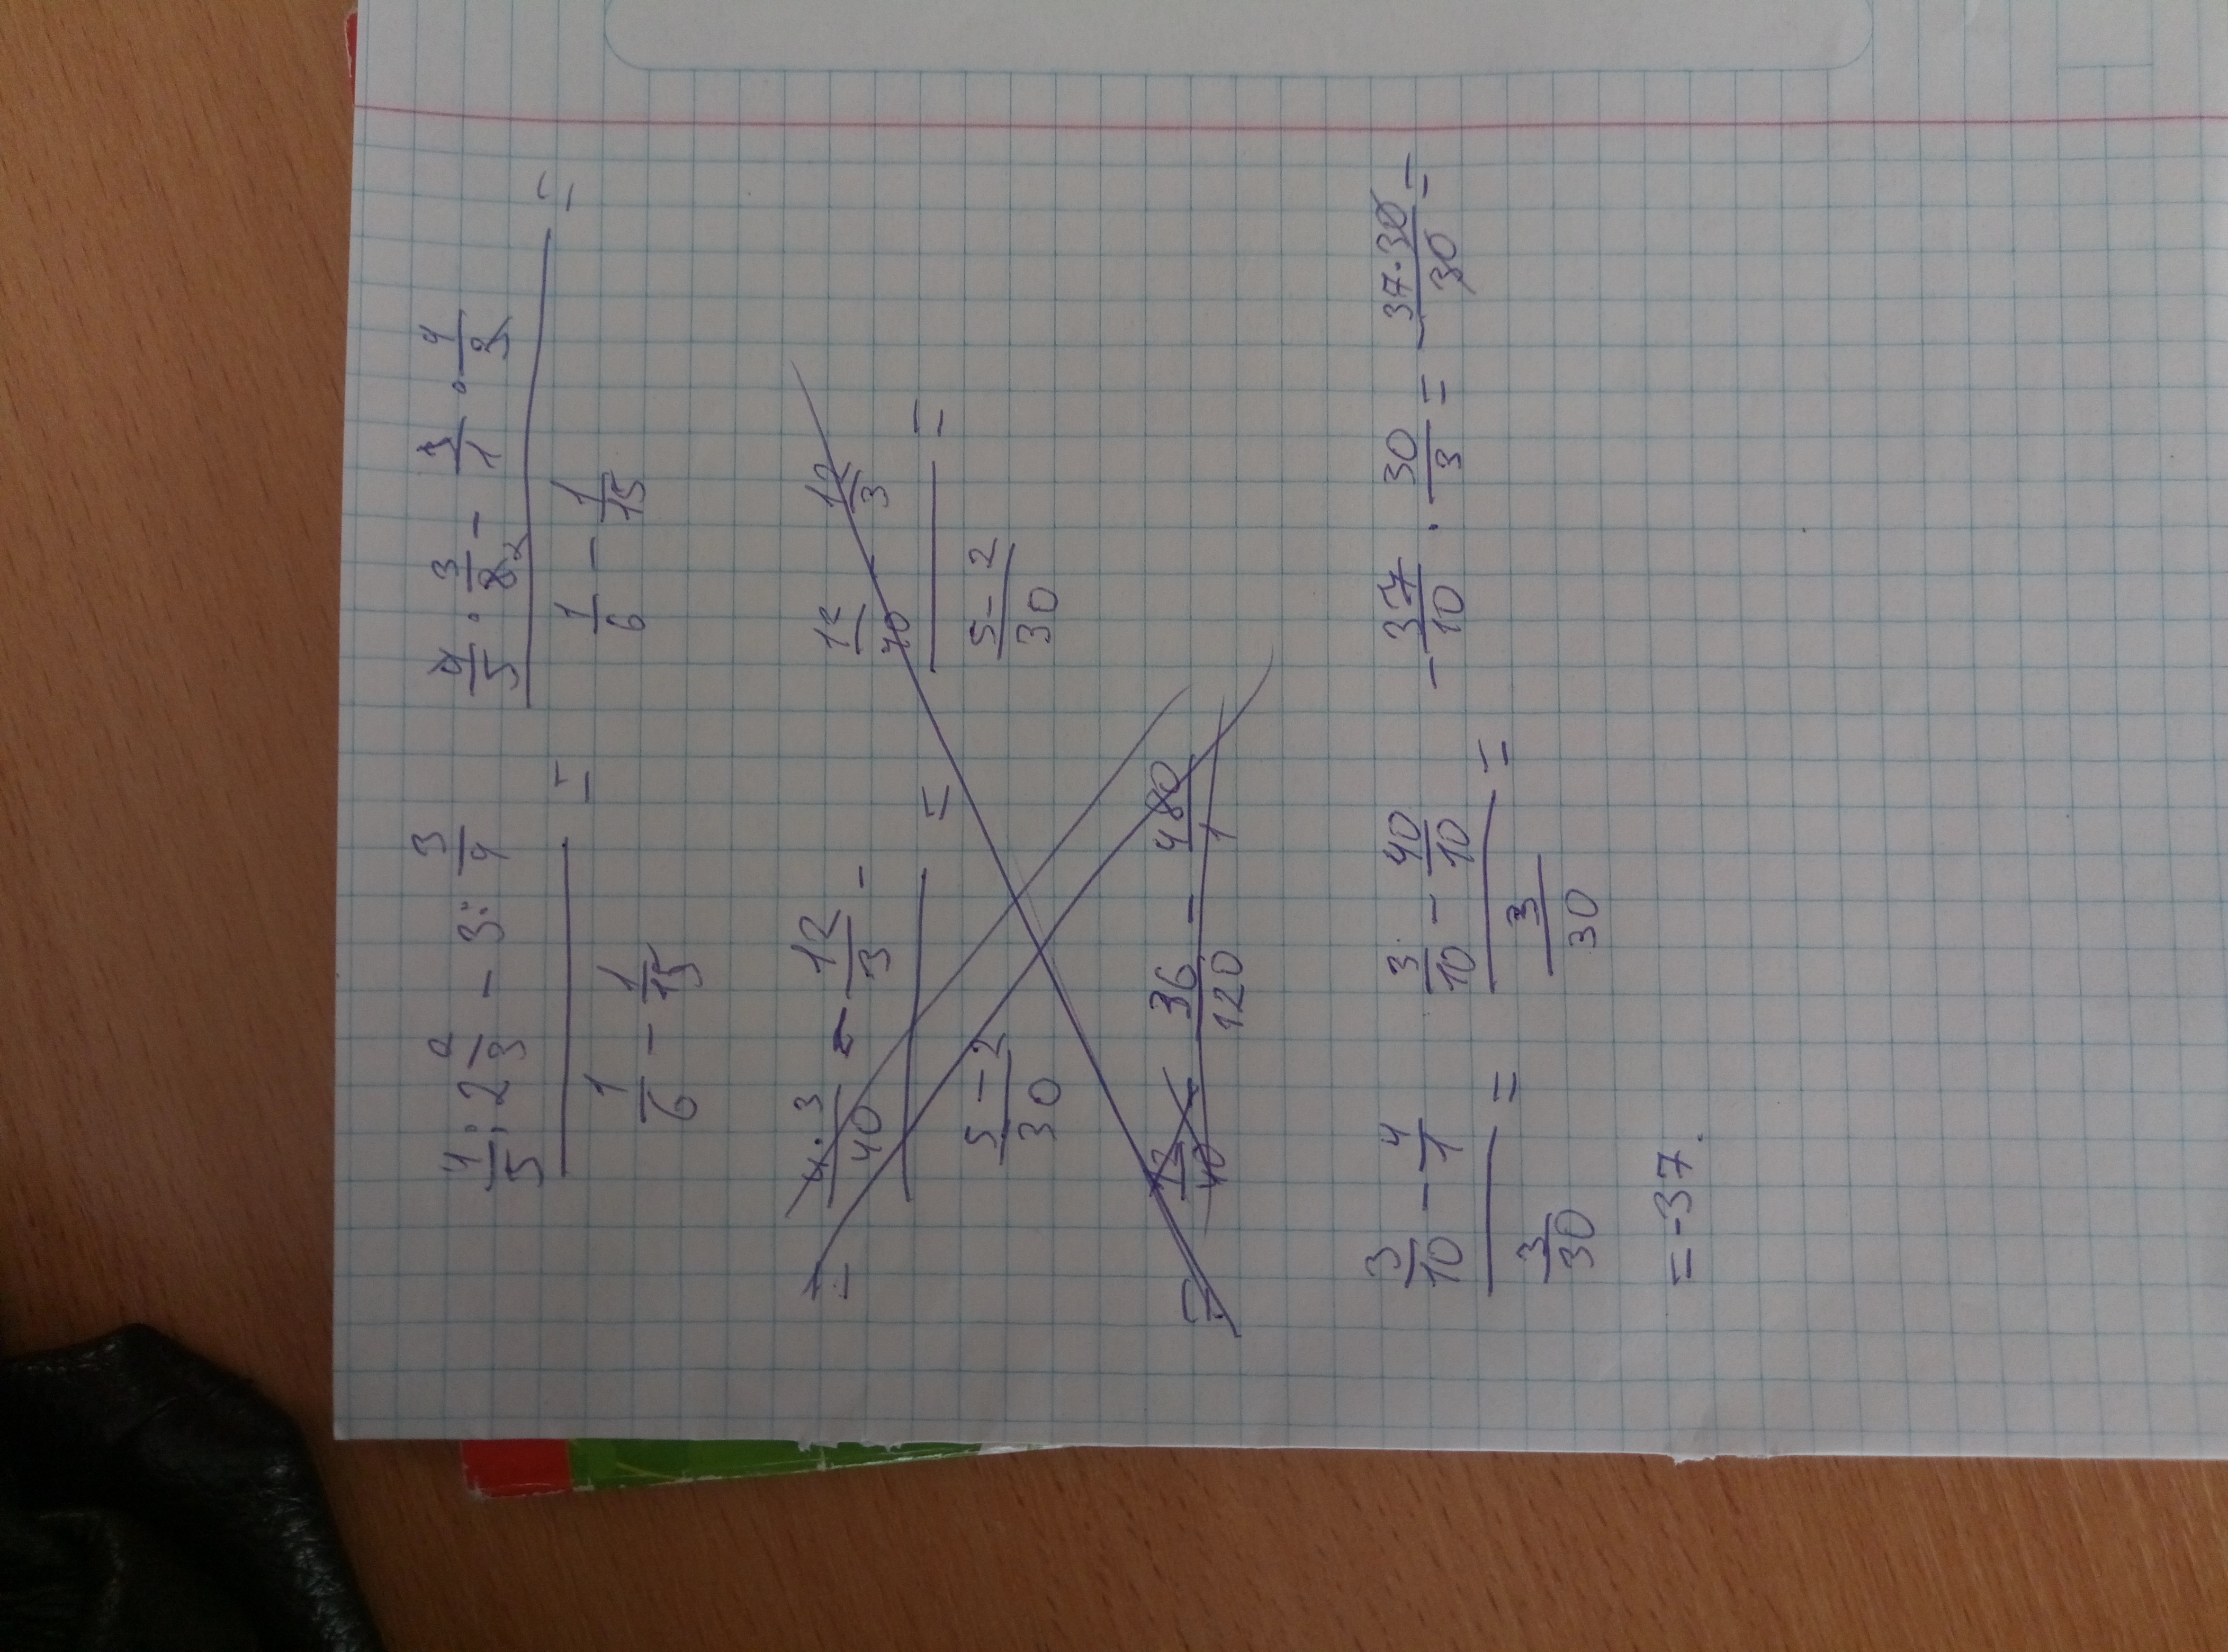 4/5 : 2 2/3 - 3 : 3/4 / 1/6 - 1/15 = 4/5 · 3/8 2 - 3/1 · 4/3 / 1/6 - 1/15 =
= 4·3/40 - 12/3 - / 5-2/30 = 12/40 12/3 / 5-2/30 =
= 12/40 36/120 - 480/1
3/10 - 4/1 / 3/30 = 3/10 - 40/10 / 3/30 = - 37/10 · 30/3 = - 37·30/30 =
= -37.